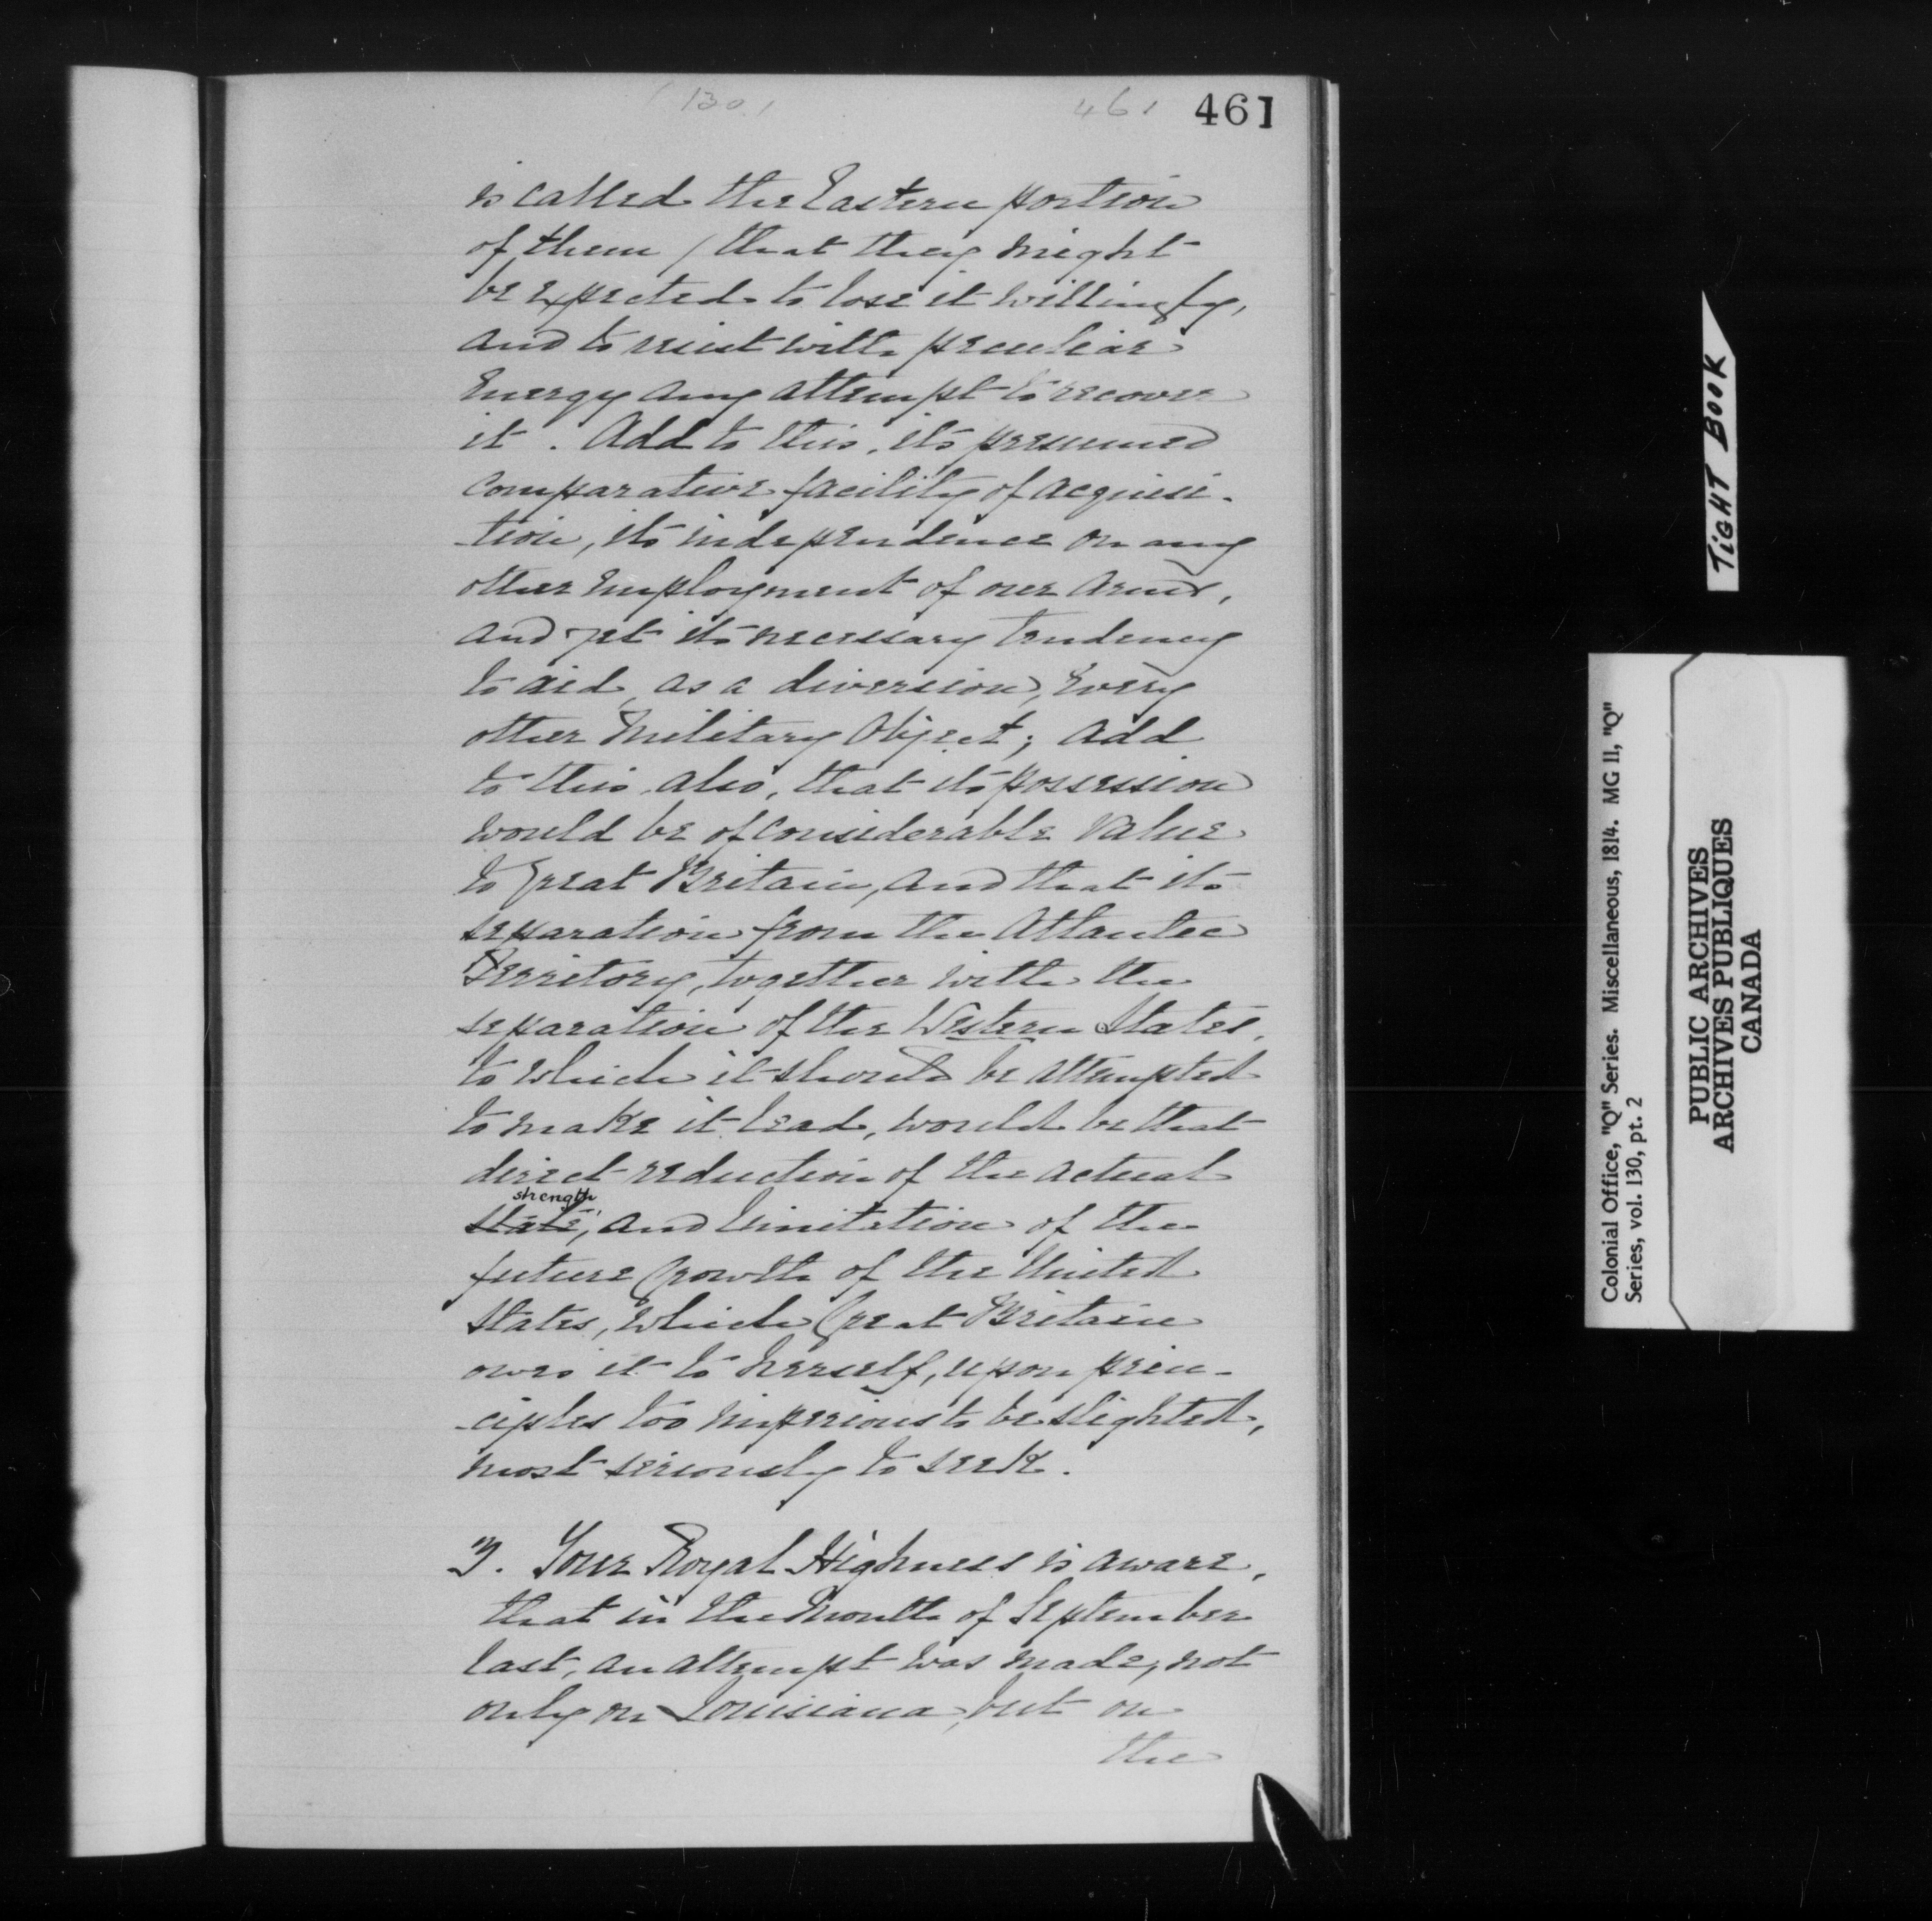 (130)
461
461
is called the Eastern portion
of them / that they might
be expected to lose it willingly,
and to resist with peculiar
Energy any attempt to recover
it. Add to this, its presumed
comparative facility of acquisi-
-tion, its independence on any
other employment of our arms,
and yet its necessary tendency
to aid, as a diversion, every
other Military Object; add
to this also, that its possession
would be of considerable value
to Great Britain, and that its
separation from the Atlantic
Territory, together with the
separation of the Western States,
to which it should be attempted
to make it lead, would be that
direct reduction of the actual
strength
state, and limitation of the
future Growth of the United
States, which Great Britain
owes it to herself, upon prin-
-ciples too imperious to be slighted,
most seriously to seek.
3. Your Royal Highness is aware,
that in the Month of September
last, an attempt was made, not
only on Louisiana, but on
the
TIGHT BOOK
Colonial Office, "Q" Series. Miscellaneous, 1814. MG 11, "Q"
Series, vol. 130, pt. 2
PUBLIC ARCHIVES
ARCHIVES PUBLIQUES
CANADA